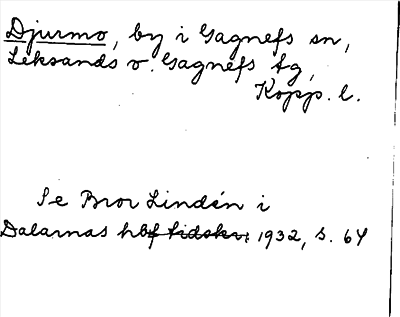 Djurmo, by i Gagnefs sn,
Leksands o. Gagnefs tg,
Kopp. l.
Se Bror Lindén i
Dalarnas hbf tidskr. 1932, s. 64